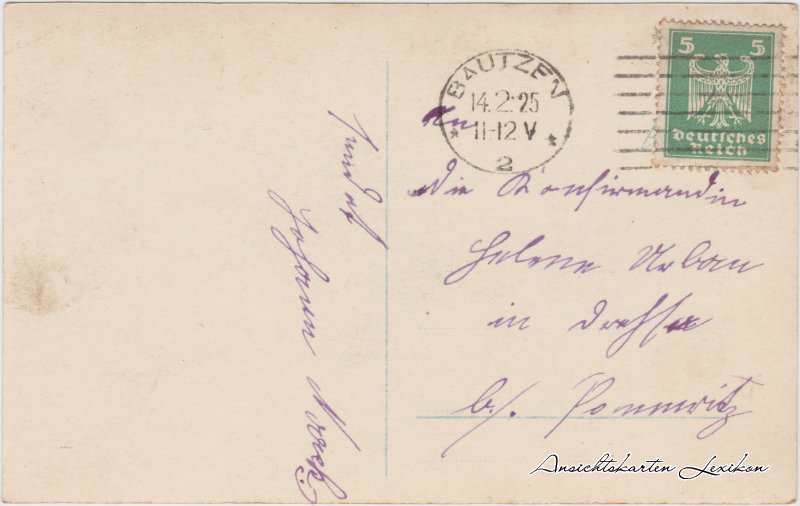 BAUTZEN
14.2.25
11-12 V
2
5 5
Deutsches
Reich
An
die Konfirmandin
Helene Urban
in
b/. Pommritz
Johann
Ansichtskarten Lexikon